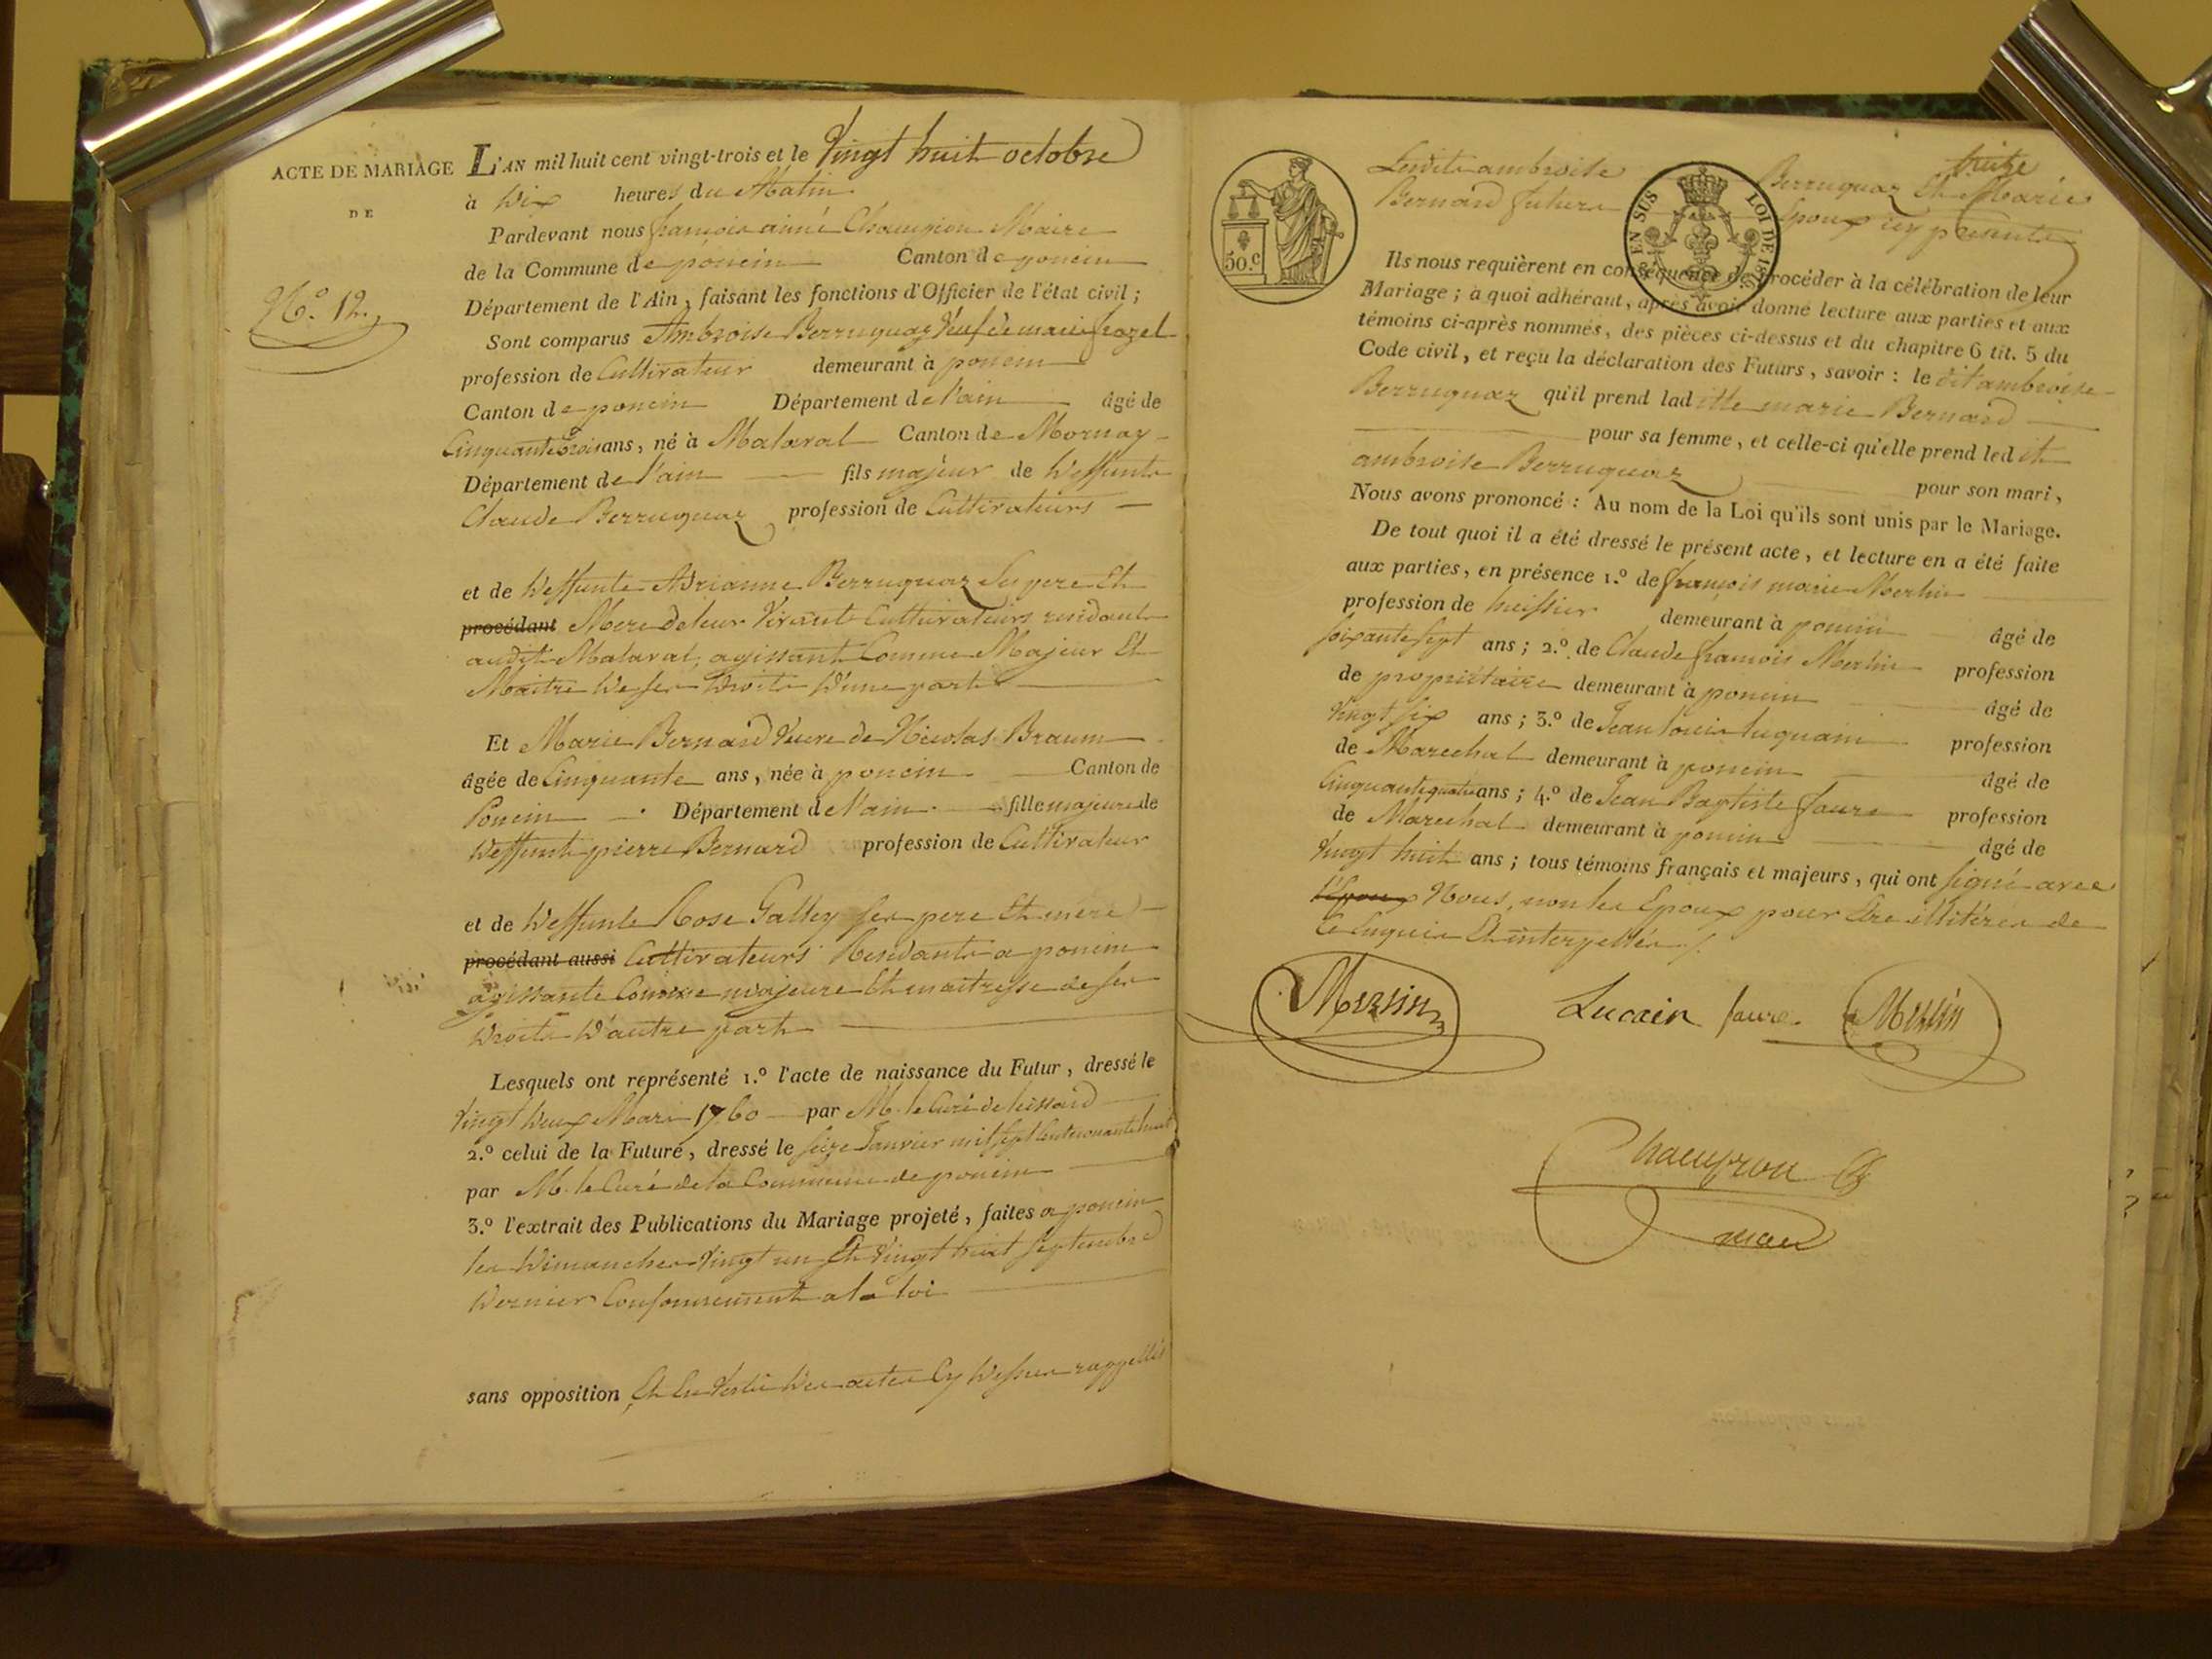 ACTE DE MARIAGE
DE
N.º 12.
L'AN mil huit cent vingt-trois et le Vingt huit octobre
à Dix heures du Matin
Pardevant nous françois aimé Maire
de la Commune de poncin Canton de poncin
Département de l'Ain, faisant les fonctions d'Officier de l'état civil;
Sont comparus Ambroise Berruquaz Veuf de marie
profession de Cultivateur demeurant à poncin
Canton de poncin Département de l'ain âgé de
Cinquante trois ans, né à Malaval Canton de Mornay
Département de l'ain fils majeur de Deffunts
Claude Berruquaz profession de Cultivateurs
et de Deffunte Adrianne Berruquaz Ses pere Et
procédant Mere de leur Vivants Cultivateurs residants
audit Malaval, agissant Comme Majeur Et
Maitre De ses Droits D'une part
Et Marie Bernard Veuve de Nicolas Braum
âgée de Cinquante ans, née à poncin Canton de
Poncin Département de l'ain fille majeure de
Deffunt pierre Bernard profession de Cultivateur
et de Deffunte Rose Galley ses pere Et mere
procédant aussi Cultivateurs Residants a poncin
agissante Comme majeure Et maitresse de ses
Droits D'autre part
Lesquels ont représenté 1.º l'acte de naissance du Futur, dressé le
Vingt Deux Mars 1760 par M. le Curé de
2.º celui de la Future, dressé le seize Janvier mil sept Cent
par M. le Curé de la Commune de poncin
3.º l'extrait des Publications du Mariage projeté, faites a poncin
les Dimanches Vingt un Et Vingt huit Septembre
Dernier Conformement a la loi
sans opposition, Et En Vertu Des actes Cy Dessus rappellés
treize
50.c
EN SUS LOI DE
Lesdits ambroise Berruquaz Et Marie
Bernard futurs Epoux icy presents
Ils nous requièrent en conséquence de procéder à la célébration de leur
Mariage; à quoi adhérant, après avoir donné lecture aux parties et aux
témoins ci-après nommés, des pièces ci-dessus et du chapitre 6 tit. 5 du
Code civil, et reçu la déclaration des Futurs, savoir: le dit ambroise
Berruquaz qu'il prend laditte marie Bernard
pour sa femme, et celle-ci qu'elle prend ledit
ambroise Berruquaz pour son mari,
Nous avons prononcé: Au nom de la Loi qu'ils sont unis par le Mariage.
De tout quoi il a été dressé le présent acte, et lecture en a été faite
aux parties, en présence 1.º de françois marie Merlin
profession de huissier demeurant à poncin âgé de
soixante sept ans; 2.º de Claude françois Merlin profession
de propriétaire demeurant à poncin âgé de
Vingt six ans; 3.º de Jean louis profession
de Marechal demeurant à poncin âgé de
Cinquante quatre ans; 4.º de Jean Baptiste faure profession
de Marechal demeurant à poncin âgé de
Vingt huit ans; tous témoins français et majeurs, qui ont signé avec
Nous, non les Epoux pour Etre illitérés de
Ce Enquis Et interpellés /.
Merlin Lucain faure Merlin